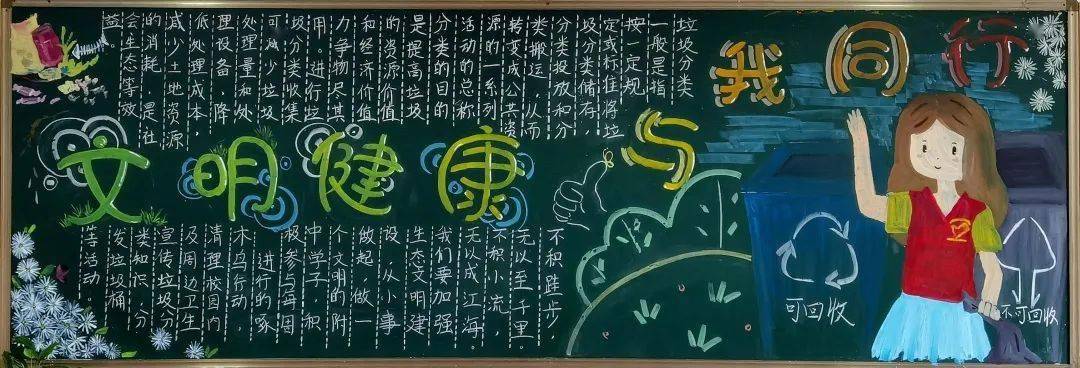 文明健康与我同行
垃圾分类
一般是指
按一定规
定或标准将垃
圾分类储存,
分类投放和分
类搬运,从而
转变成公共资
源的一系列
活动的总称
分类的目的
是提高垃圾
的资源价值
和经济价值
力争物尽其
用。进行垃
圾分类收集
可减少垃圾
处理量和处
理设备,降
低处理成本,
减少土地资源
的消耗,是社
会生态等效
益。
不积跬步,
无以至千里。
不积小流,
无以成江海。
我们要加强
生态文明建
设 从小事
做起 做一
个文明的附
中学子,积
极参与每周
进行的啄
木鸟行动,
清理校园内
及周边卫生
宣传垃圾分
类知识 分
发垃圾桶
等活动。
可回收
不可回收